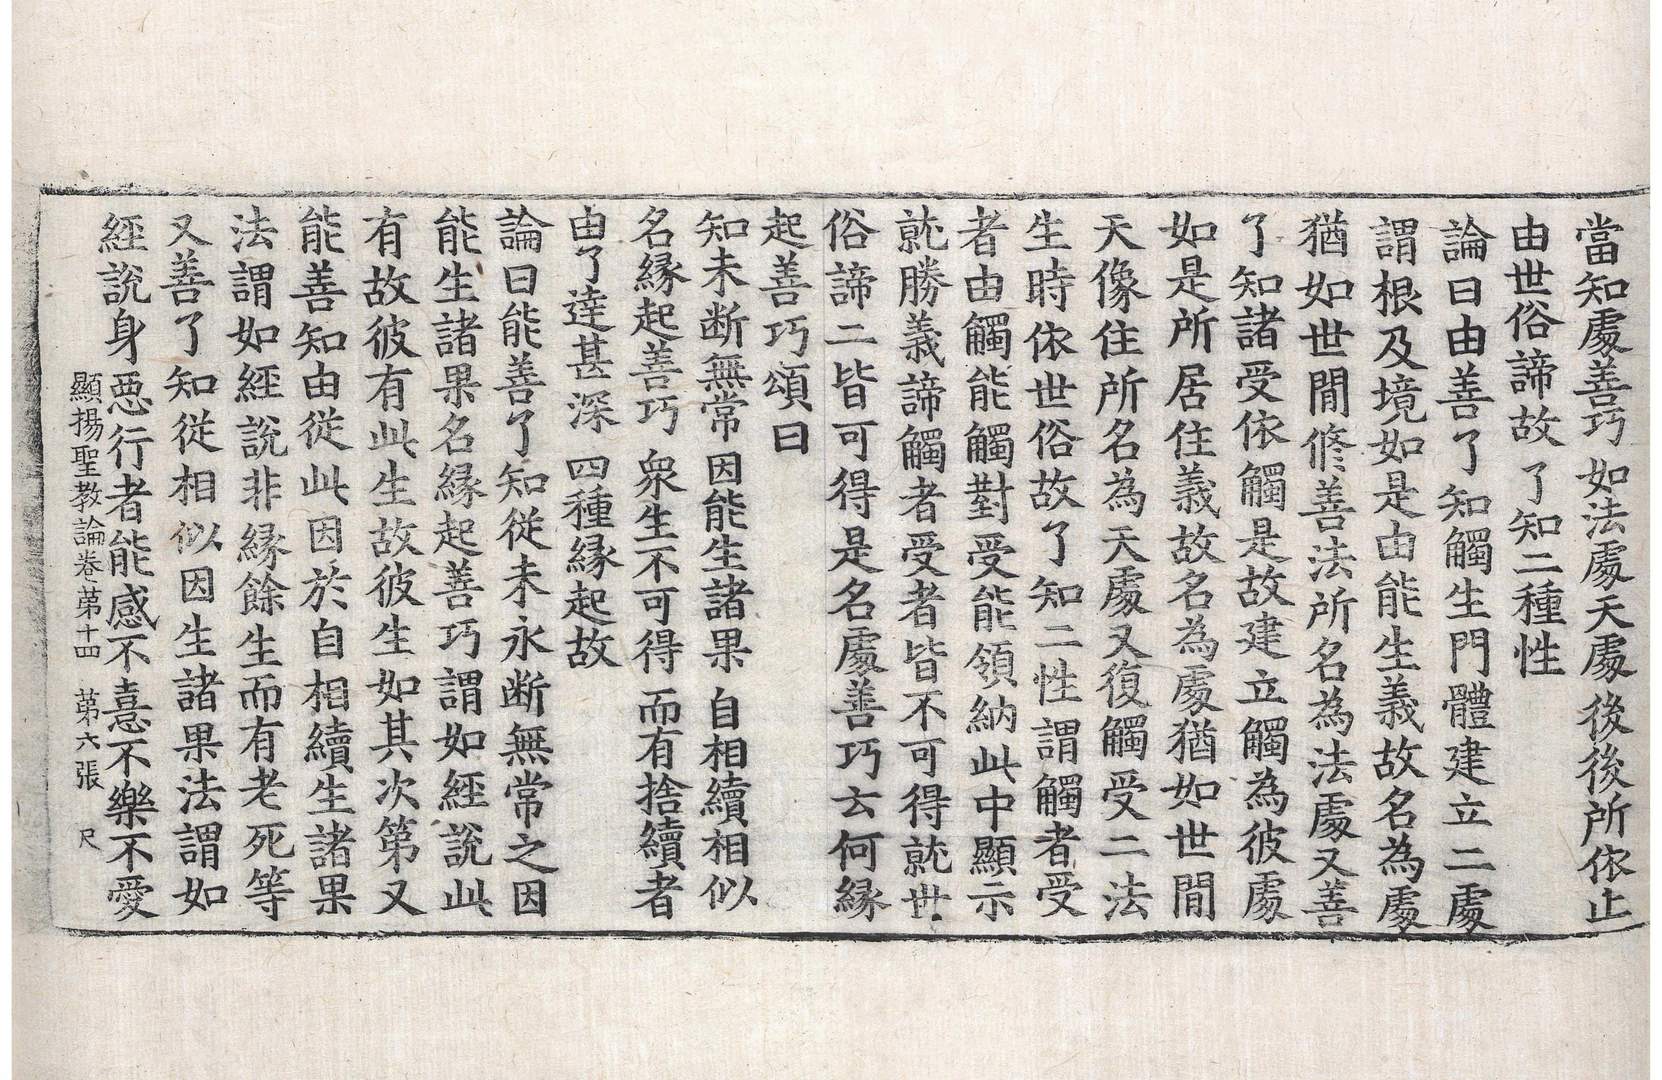 當知處善巧 如法處天處 後後所依止
由世俗諦故 了知二種性
論曰由善了知觸生門體建立二處
謂根及境如是由能生義故名為處
猶如世間修善法所名為法處又善
了知諸受依觸是故建立觸為彼處
如是所居住義故名為處猶如世間
天像住所名為天處又復觸受二法
生時依世俗故了知二性謂觸者受
者由觸能觸對受能領納此中顯示
就勝義諦觸者受者皆不可得就世
俗諦二皆可得是名處善巧云何緣
起善巧頌曰
知未斷無常因能生諸果 自相續相似
名緣起善巧 衆生不可得 而有捨續者
由了達甚深 四種緣起故
論曰能善了知從未永斷無常之因
能生諸果名緣起善巧謂如經說此
有故彼有此生故彼生如其次第又
能善知由從此因於自相續生諸果
法謂如經說非緣餘生而有老死等
又善了知從相似因生諸果法謂如
經說身惡行者能感不憙不樂不愛
顯揚聖教論卷第十四 第六張 尺